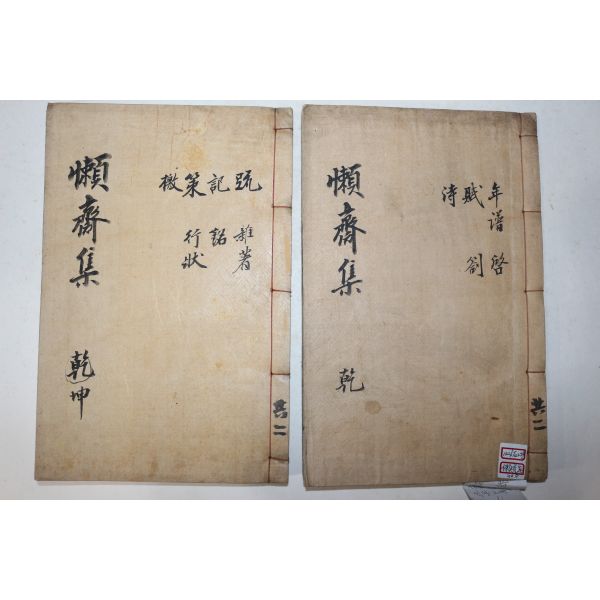 懶齋集 乾
年譜 啓
賦 箚
詩
共二
懶齋集 乾坤
疏 雜著
記 銘
策 行狀
檄
共二